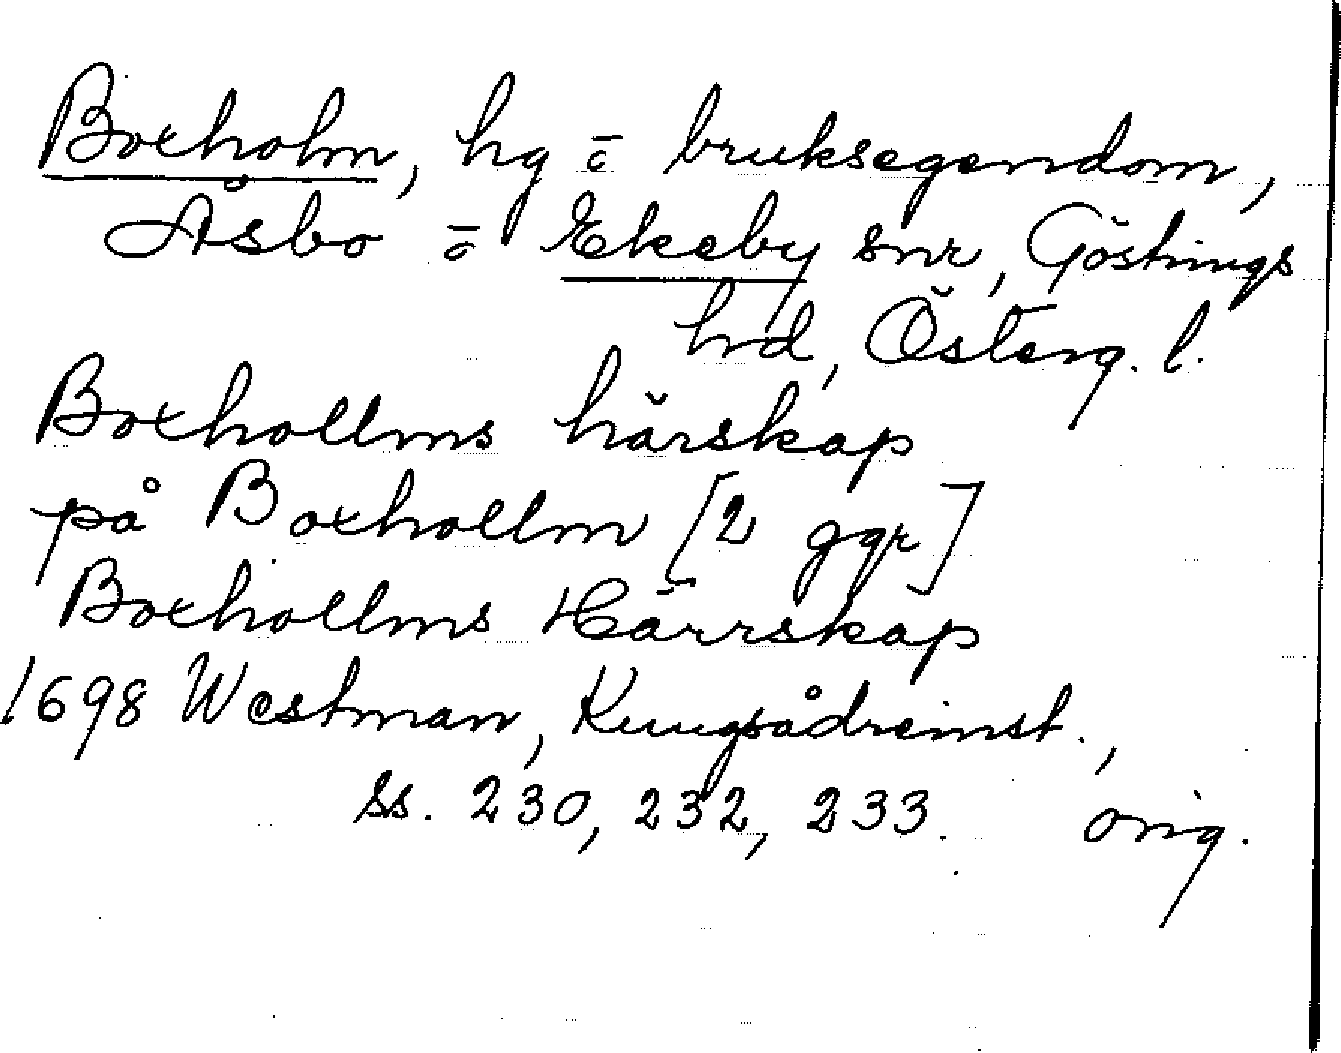 Boxholm, hg ō bruksegendom,
Åsbo ō Ekeby snr, Göstrings
hrd, Österg. l.
Boxhollms härskap
på Boxhollm [2 ggr]
Boxhollms Härrskap
1698 Westman, Kungsådreinst.,
ss. 230, 232, 233. orig.